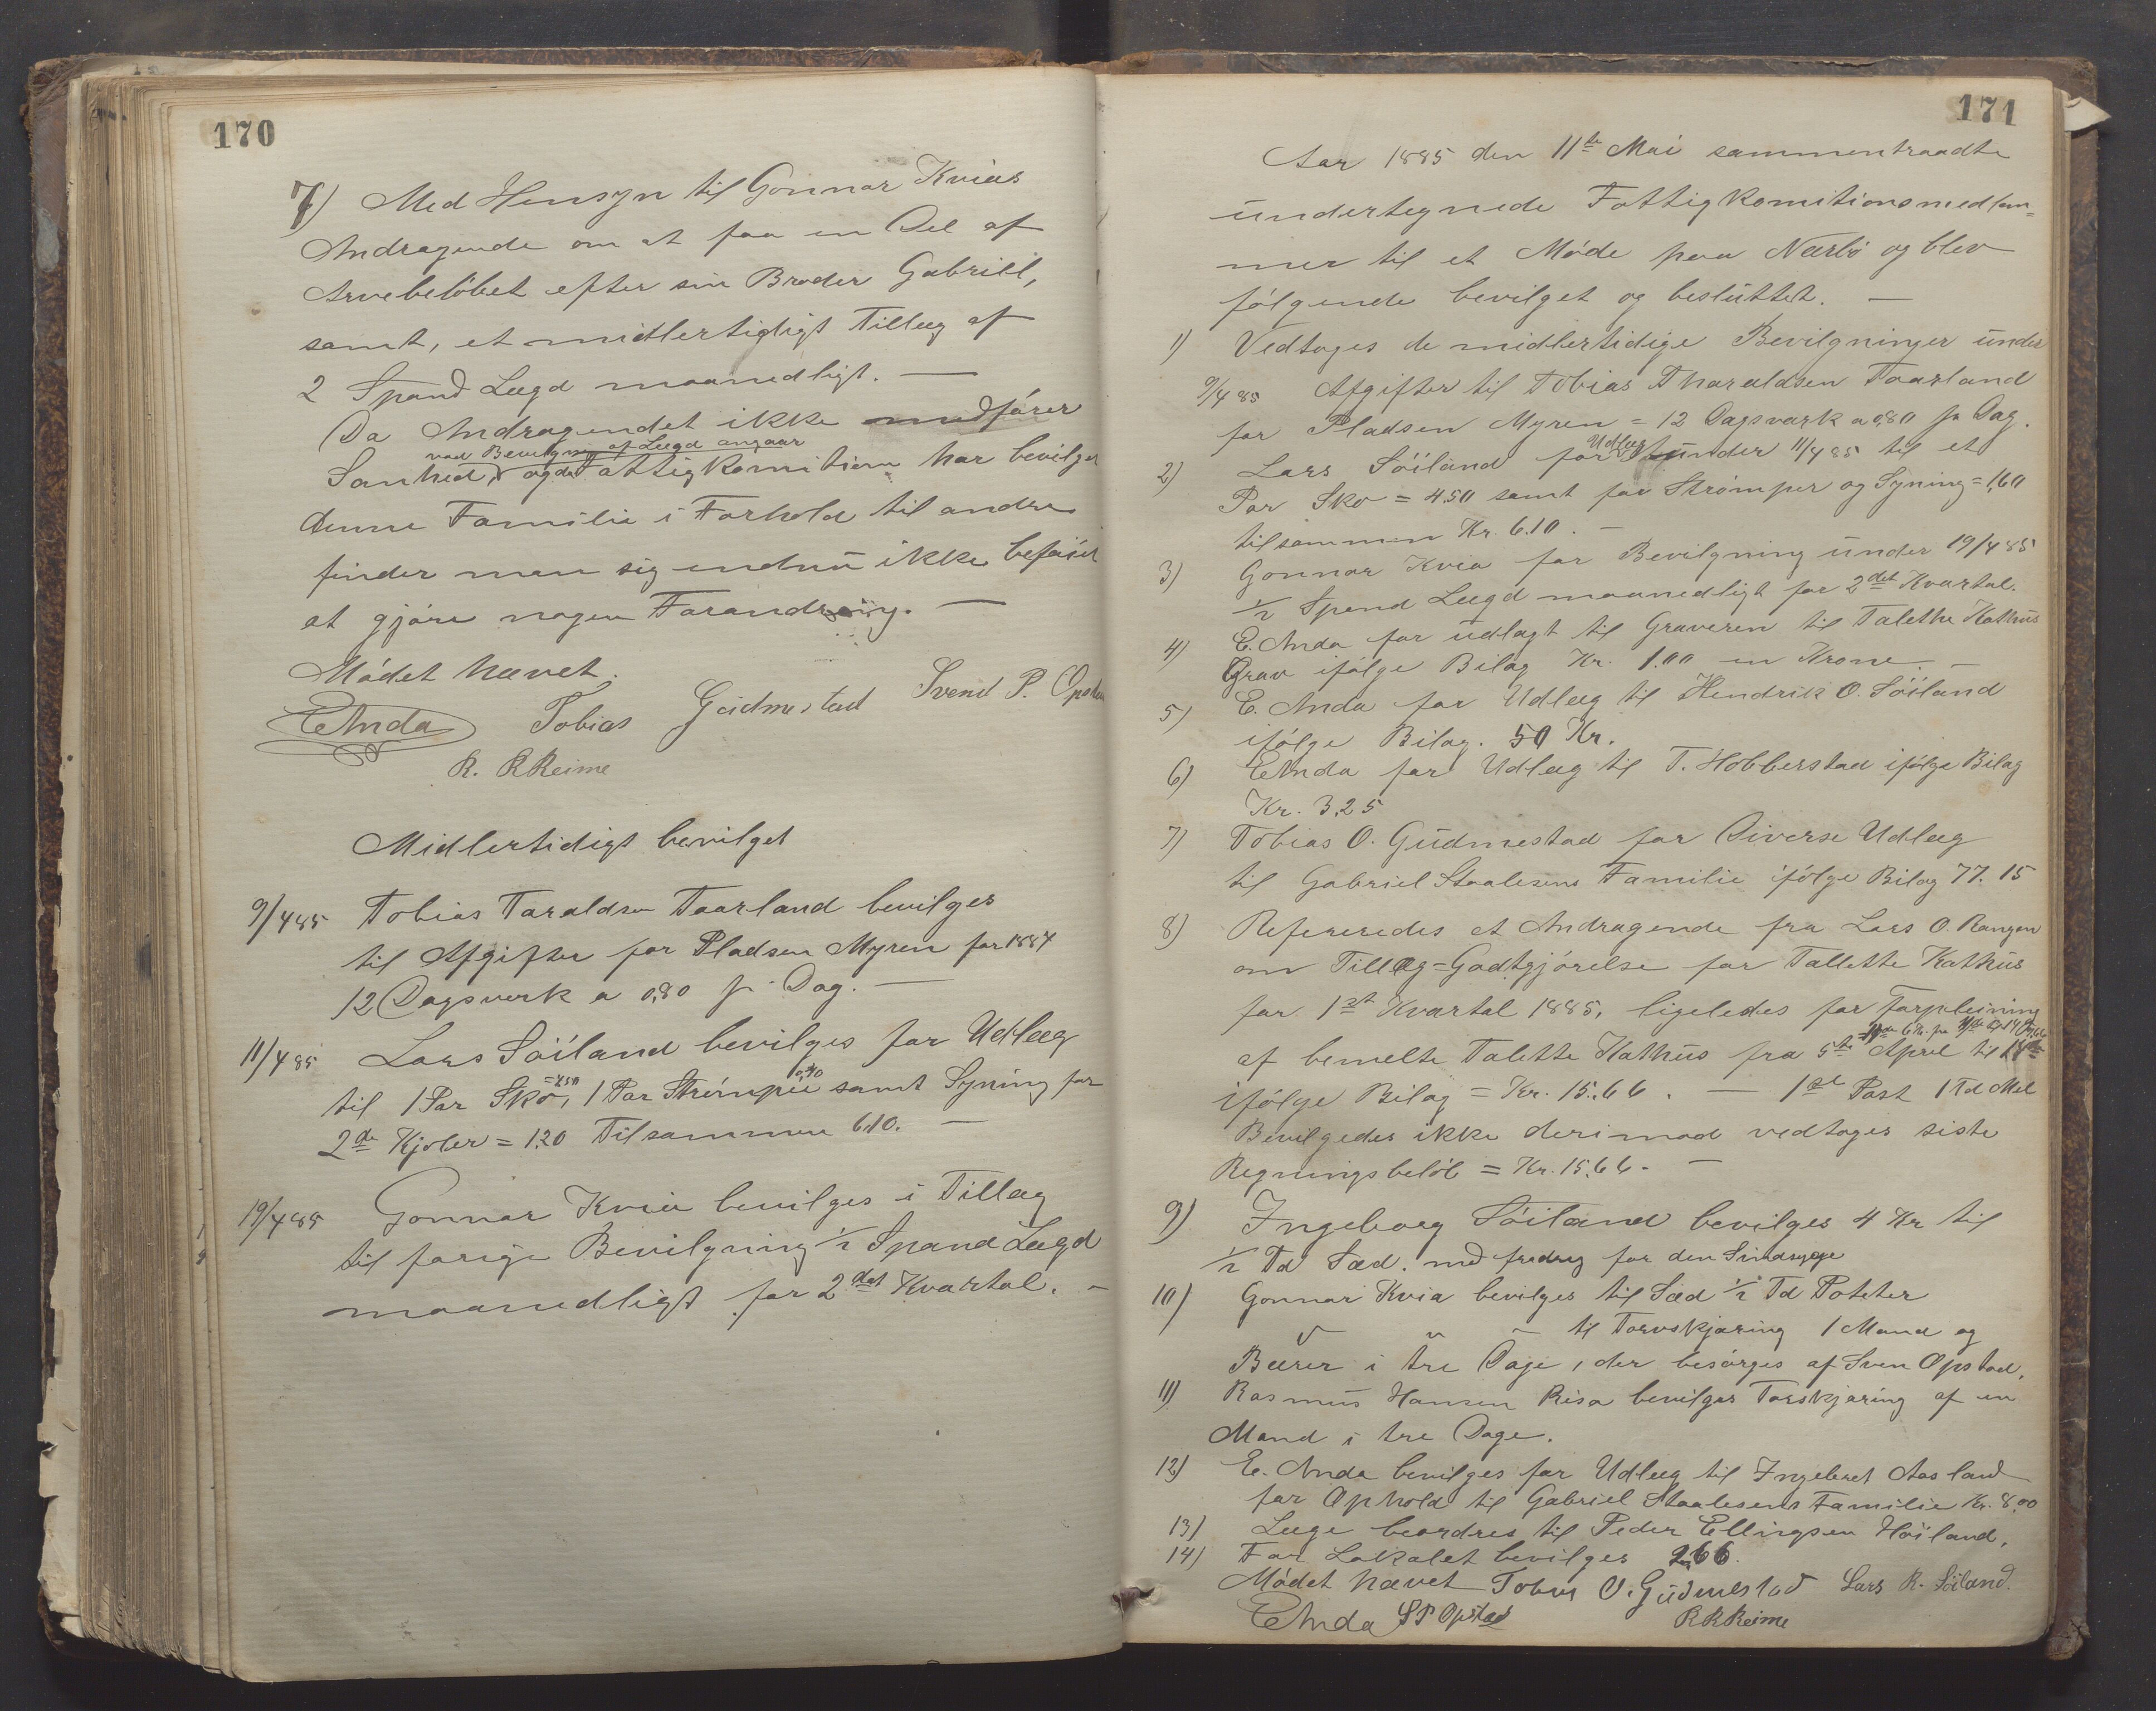 170
7) Med Hensyn til Gonnar Kvias
Andragende om at faa en Del af
Arvebeløbet efter sin Broder Gabriel,
samt, et midlertidigt Tillæg af
2 Spand Lægd maanedligt. —
Da Andragendet ikke medfører
vad Bevilgning af Lægd angaar
Sanhed, og da Fattigkomitionen har bevilget
denne Familie i Forhold til andre
finder man sig endnu ikke beføiet
at gjøre nogen Forandring. —
Mødet hævet.
EAnda Tobias Gudmestad Svend P. Opstad
R. R Reime
Midlertidigt bevilget
9/4 85 Tobias Taraldsen Taarland bevilges
til Afgifter for Pladsen Myren for 1884
12 Dagsverk a 0,80 pr Dag. —
11/4 85 Lars Söiland bevilges for Udlæg
=4,50 0,40
til 1 Par Sko, 1 Par Strømper samt Syning for
2de Kjoler = 1.20 Tilsammen 6.10. —
19/4 85 Gonnar Kvia bevilges i Tillæg
til forige Bevilgning 1/2 Spand Lægd
maanedligt for 2det Kvartal. —
171
Aar 1885 den 11te Mai sammentraadte
undertegnede Fattigkomitionsmedlem=
mer til et Møde paa Nærbø og blev
følgende bevilget og besluttet. —
1) Vedtoges de midlertidige Bevilgninger under
9/4 85 Afgifter til Tobias Tharaldsen Taarland
for Pladsen Myren = 12 Dagsværk a 0,80 pr Dag.
Udlæg
2) Lars Söiland for under 11/4 85 til et
Par Sko = 4.50 samt for Strømper og Syning = 1,60
tilsammen Kr. 6.10. —
3) Gonnar Kvia for Bevilgning under 19/4 85
1/2 Spand Lægd maanedligt for 2det Kvartal.
4) E. Anda for udlagt til Graveren til Talethe Kathus
Grav ifølge Bilag Kr. 1.00 en Krone. —
5) E. Anda for Udlæg til Hendrik O. Söiland
ifølge Bilag. 50 Kr.
6) EAnda for Udlæg til T. Hobberstad ifølge Bilag
Kr. 3,25
7) Tobias O. Gudmestad for Diverse Udlæg
til Gabriel Staalesens Familie ifølge Bilag 77.15
8) Refereredes et Andragende fra Lars O. Rangen
om Tillæg=Godtgjørelse for Tallette Kathus
for 1st Kvartal 1885, ligeledes for Forpleining
af bemelte Talette Kathus fra 5te April til 18de
ifølge Bilag = Kr. 15.66. — 1st Post 1 Td Mel
Bevilgedes ikke derimod vedtoges siste
Regningsbeløb = Kr. 15.66. —
9) Ingeborg Söiland bevilges 4 Kr til
1/2 Td Sæd. med fradrag for den Sindsyge
10) Gonnar Kvia bevilges til Sæd 1/2 Td Poteter
" " — til Torvskjæring 1 Mand og
Bærer i tre Dage, der besørges af Sven Opstad,
11) Rasmus Hansen Risa bevilges Torskjæring af en
Mand i tre Dage.
12) E. Anda bevilges for Udlæg til Ingebret Aasland
for Ophold til Gabriel Staalesens Familie Kr. 8,00
13) Læge beordres til Peder Ellingsen Höiland,
14) For Lokalet bevilges 2,66.
Mødet hævet Tobias O. Gudmestad Lars R. Söiland.
EAnda S P Opstad R R Reime